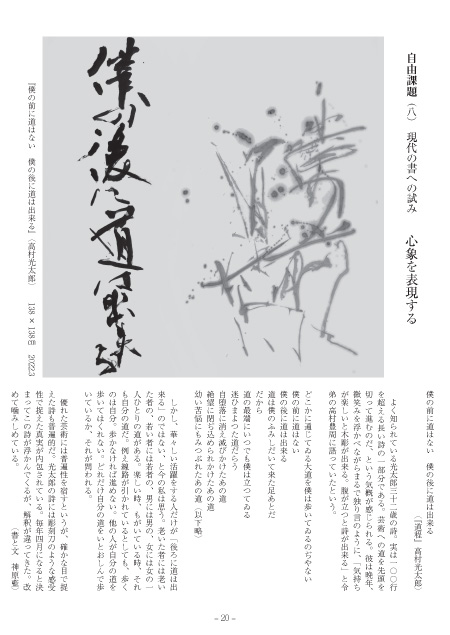 自由課題(八) 現代の書への試み 心象を表現する
僕の後に道は出来る
『僕の前に道はない 僕の後に道は出来る』(高村光太郎) 138×138㎝ 2022.3
僕の前に道はない 僕の後に道は出来る
(『道程』高村光太郎)
よく知られている光太郎三十二歳の時。実は一〇〇行
を超える長い詩の一部分である。芸術への道を先頭を
切って進むのだ、という気概が感じられる。彼は晩年、
微笑みを浮かべながらまるで独り言のように、「気持ち
が楽しいと木彫が出来る。腹が立つと詩が出来る」と令
弟の高村豊周に語っていたという。
どこかに通じてゐる大道を僕は歩いてゐるのぢやない
僕の前に道はない
僕の後に道は出来る
道は僕のふみしだいて来た足あとだ
だから
道の最端にいつでも僕は立つてゐる
迷ひまよつた道だらう
自堕落に消え滅びかけたあの道
絶望に閉ぢ込められかけたあの道
幼い苦悩にもみつぶされたあの道(以下略)
しかし、華々しい活躍をする人だけが「後ろに道は出
来る」のではない、と今の私は思う。老いた者には老い
た者の、若い者には若者の、男には男の、女には女の一
人ひとりの道がある。楽しい時、もがいている時、それ
も自分の道だ。例え線路が引かれているとしても、歩く
のは自分。歩かなければ進めない。他の人が自分の道を
歩いてはくれない。どれだけ自分の道をいとおしんで歩
いているか、それが問われる。
優れた芸術には普遍性を宿すというが、確かな目で捉
えた詩も普遍的だ。光太郎の詩には彫刻刀のような感受
性で捉えた真実が内包されている。毎年四月になると決
まってこの詩が浮かんでくるが、解釈が違ってきた。改
めて噛みしめている。
(書と文 神原藍)
– 20 –